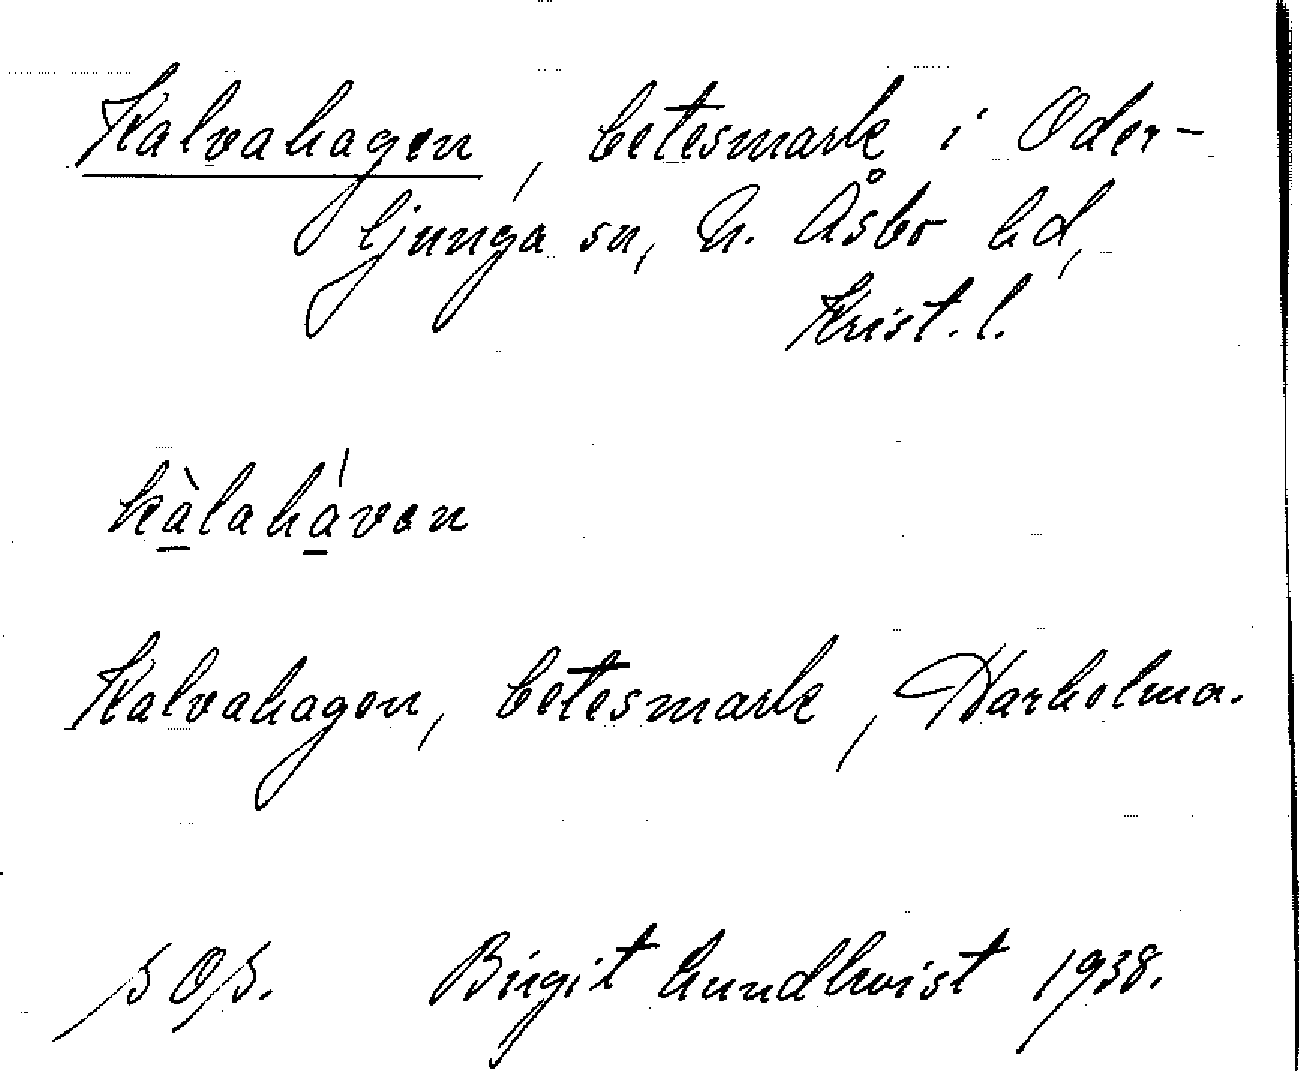 Kalvahagen, betesmark i Oder-
ljunga sn, N. Åsbo hd,
Krist. l.
kàlaháven
Kalvahagen, betesmark, Harholma.
Birgit Lundkvist 1938.